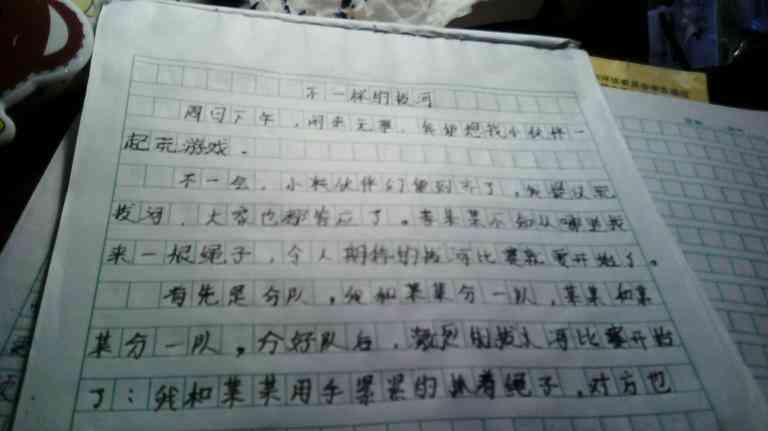 不一样的拔河
周日下午，闲来无事，我便想找小伙伴一
起玩游戏。
不一会，小伙伴们便到齐了，我提议玩
拔河，大家也都答应了。李某某不知从哪里找
来一根绳子，令人期待的拔河比赛就要开始了。
首先是分队，我和某某分一队，某某和某
某分一队。分好队后，激烈的拔河比赛开始
了：我和某某用手紧紧的抓着绳子，对方也